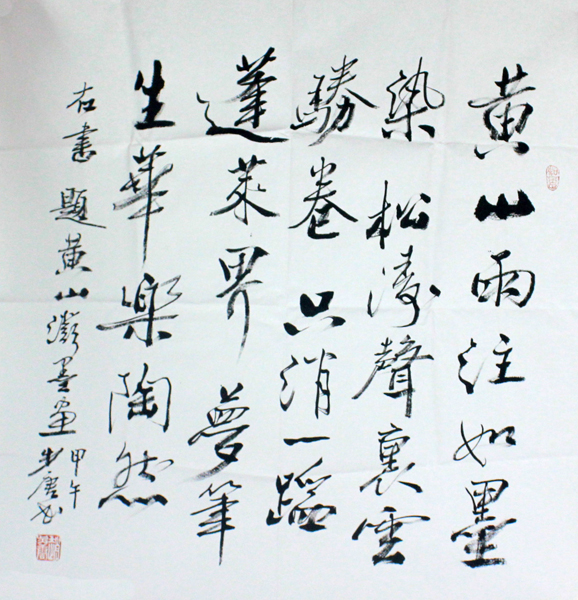 黄山雨注如墨
染松涛聲裏雲
騰卷只消一蹈
蓬萊界夢筆
生華樂陶然
右書題黄山潑墨畫甲午